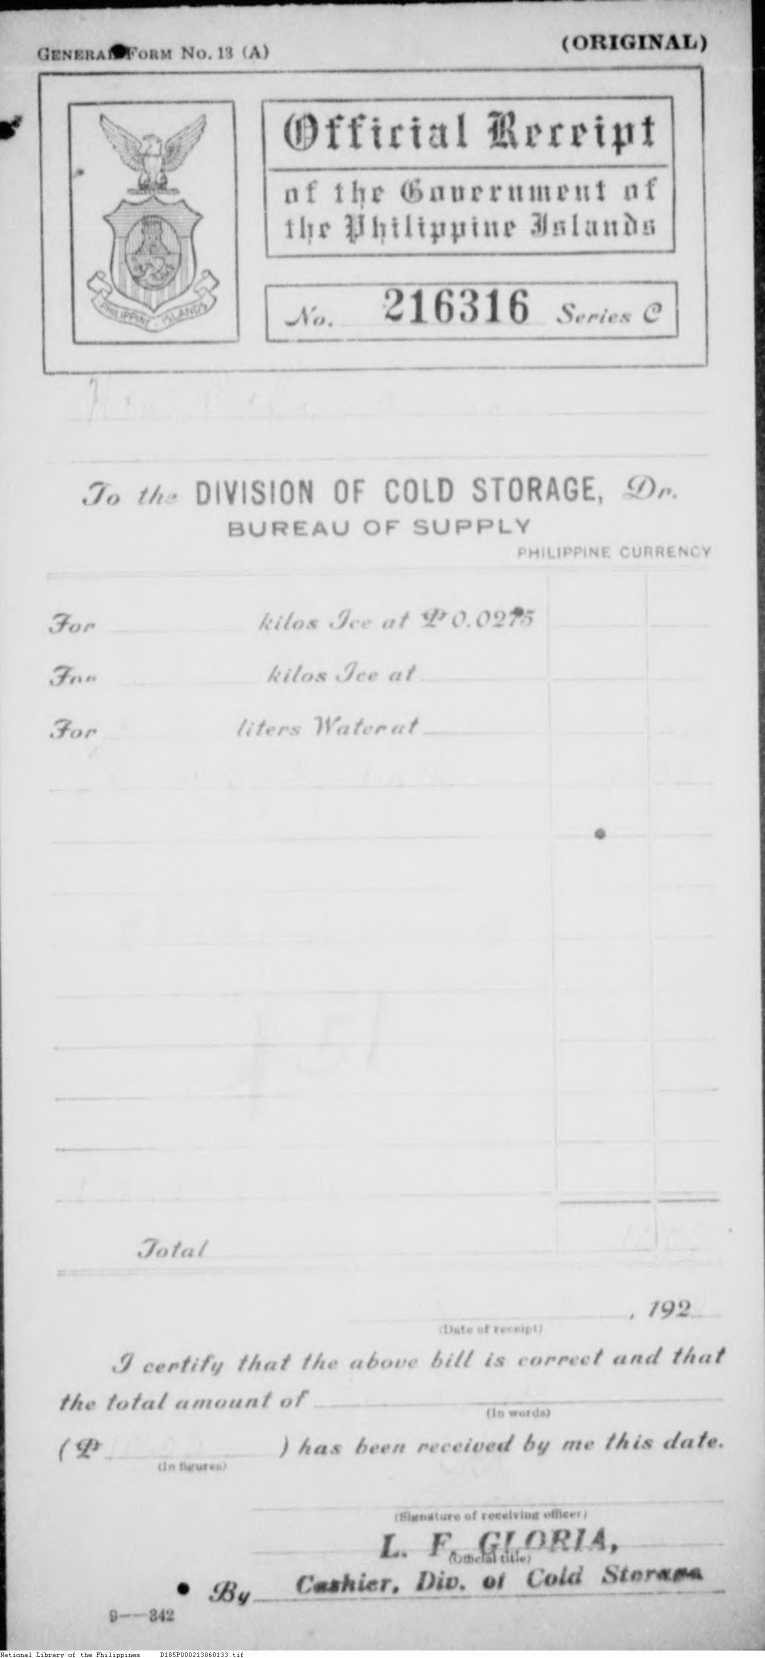 GENERAL FORM No. 13 (A)
(ORIGINAL)
Official Receipt
of the Government of
the Philippine Islands
PHILIPPINE ISLANDS
No. 216316 Series C
To the DIVISION OF COLD STORAGE, Dr.
BUREAU OF SUPPLY
PHILIPPINE CURRENCY
For kilos Ice at ₱0.0275
For kilos Ice at
For liters Water at
Total
, 192
(Date of receipt)
I certify that the above bill is correct and that
the total amount of
(In words)
(₱ ) has been received by me this date.
(In figures)
(Signature of receiving officer)
L. F. GLORIA,
(Official title)
By Cashier, Div. of Cold Storage
9--342
National Library of the Philippines D185P000213060133.tif